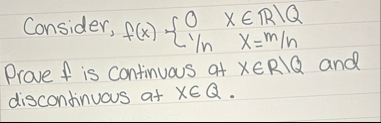 Consider, f(x) { 0 x ∈ ℝ\ℚ
1/n x = m/n
Prove f is continuous at x∈ℝ\ℚ and
discontinuous at x∈ℚ.